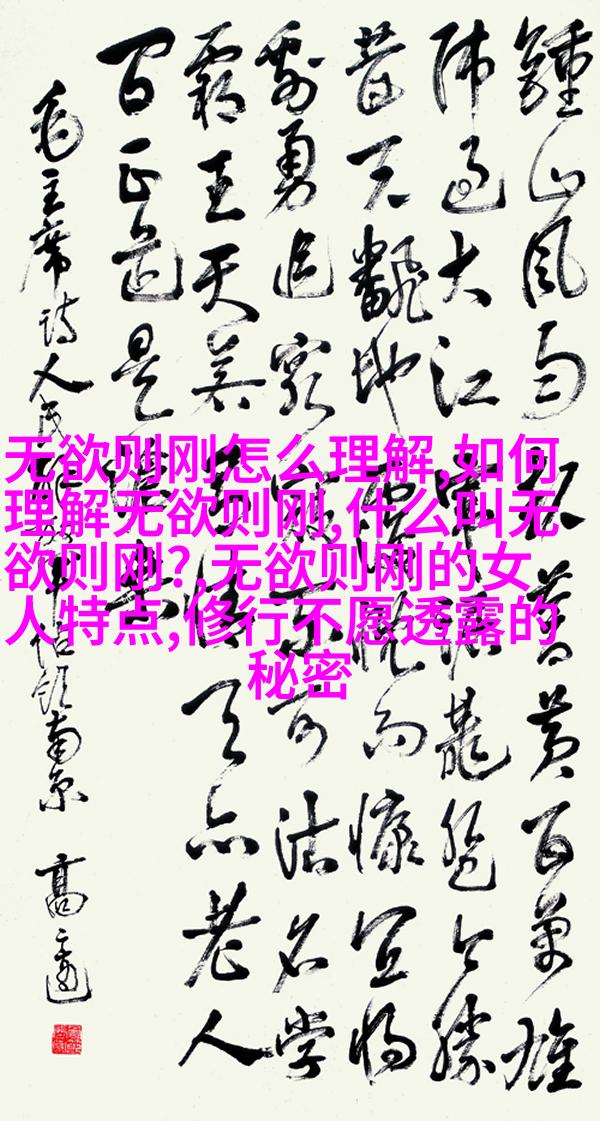 鍾山風雨起蒼黄百萬雄
师過大江虎踞龍盤今勝
昔天翻地覆慨而慷宜將
剩勇追窮寇不可沽名學
霸王天若有情天亦老人
間正道是滄桑
毛主席诗人民解放军占領南京
无欲则刚怎么理解,如何
理解无欲则刚,什么叫无
欲则刚?,无欲则刚的女
人特点,修行不愿透露的
秘密